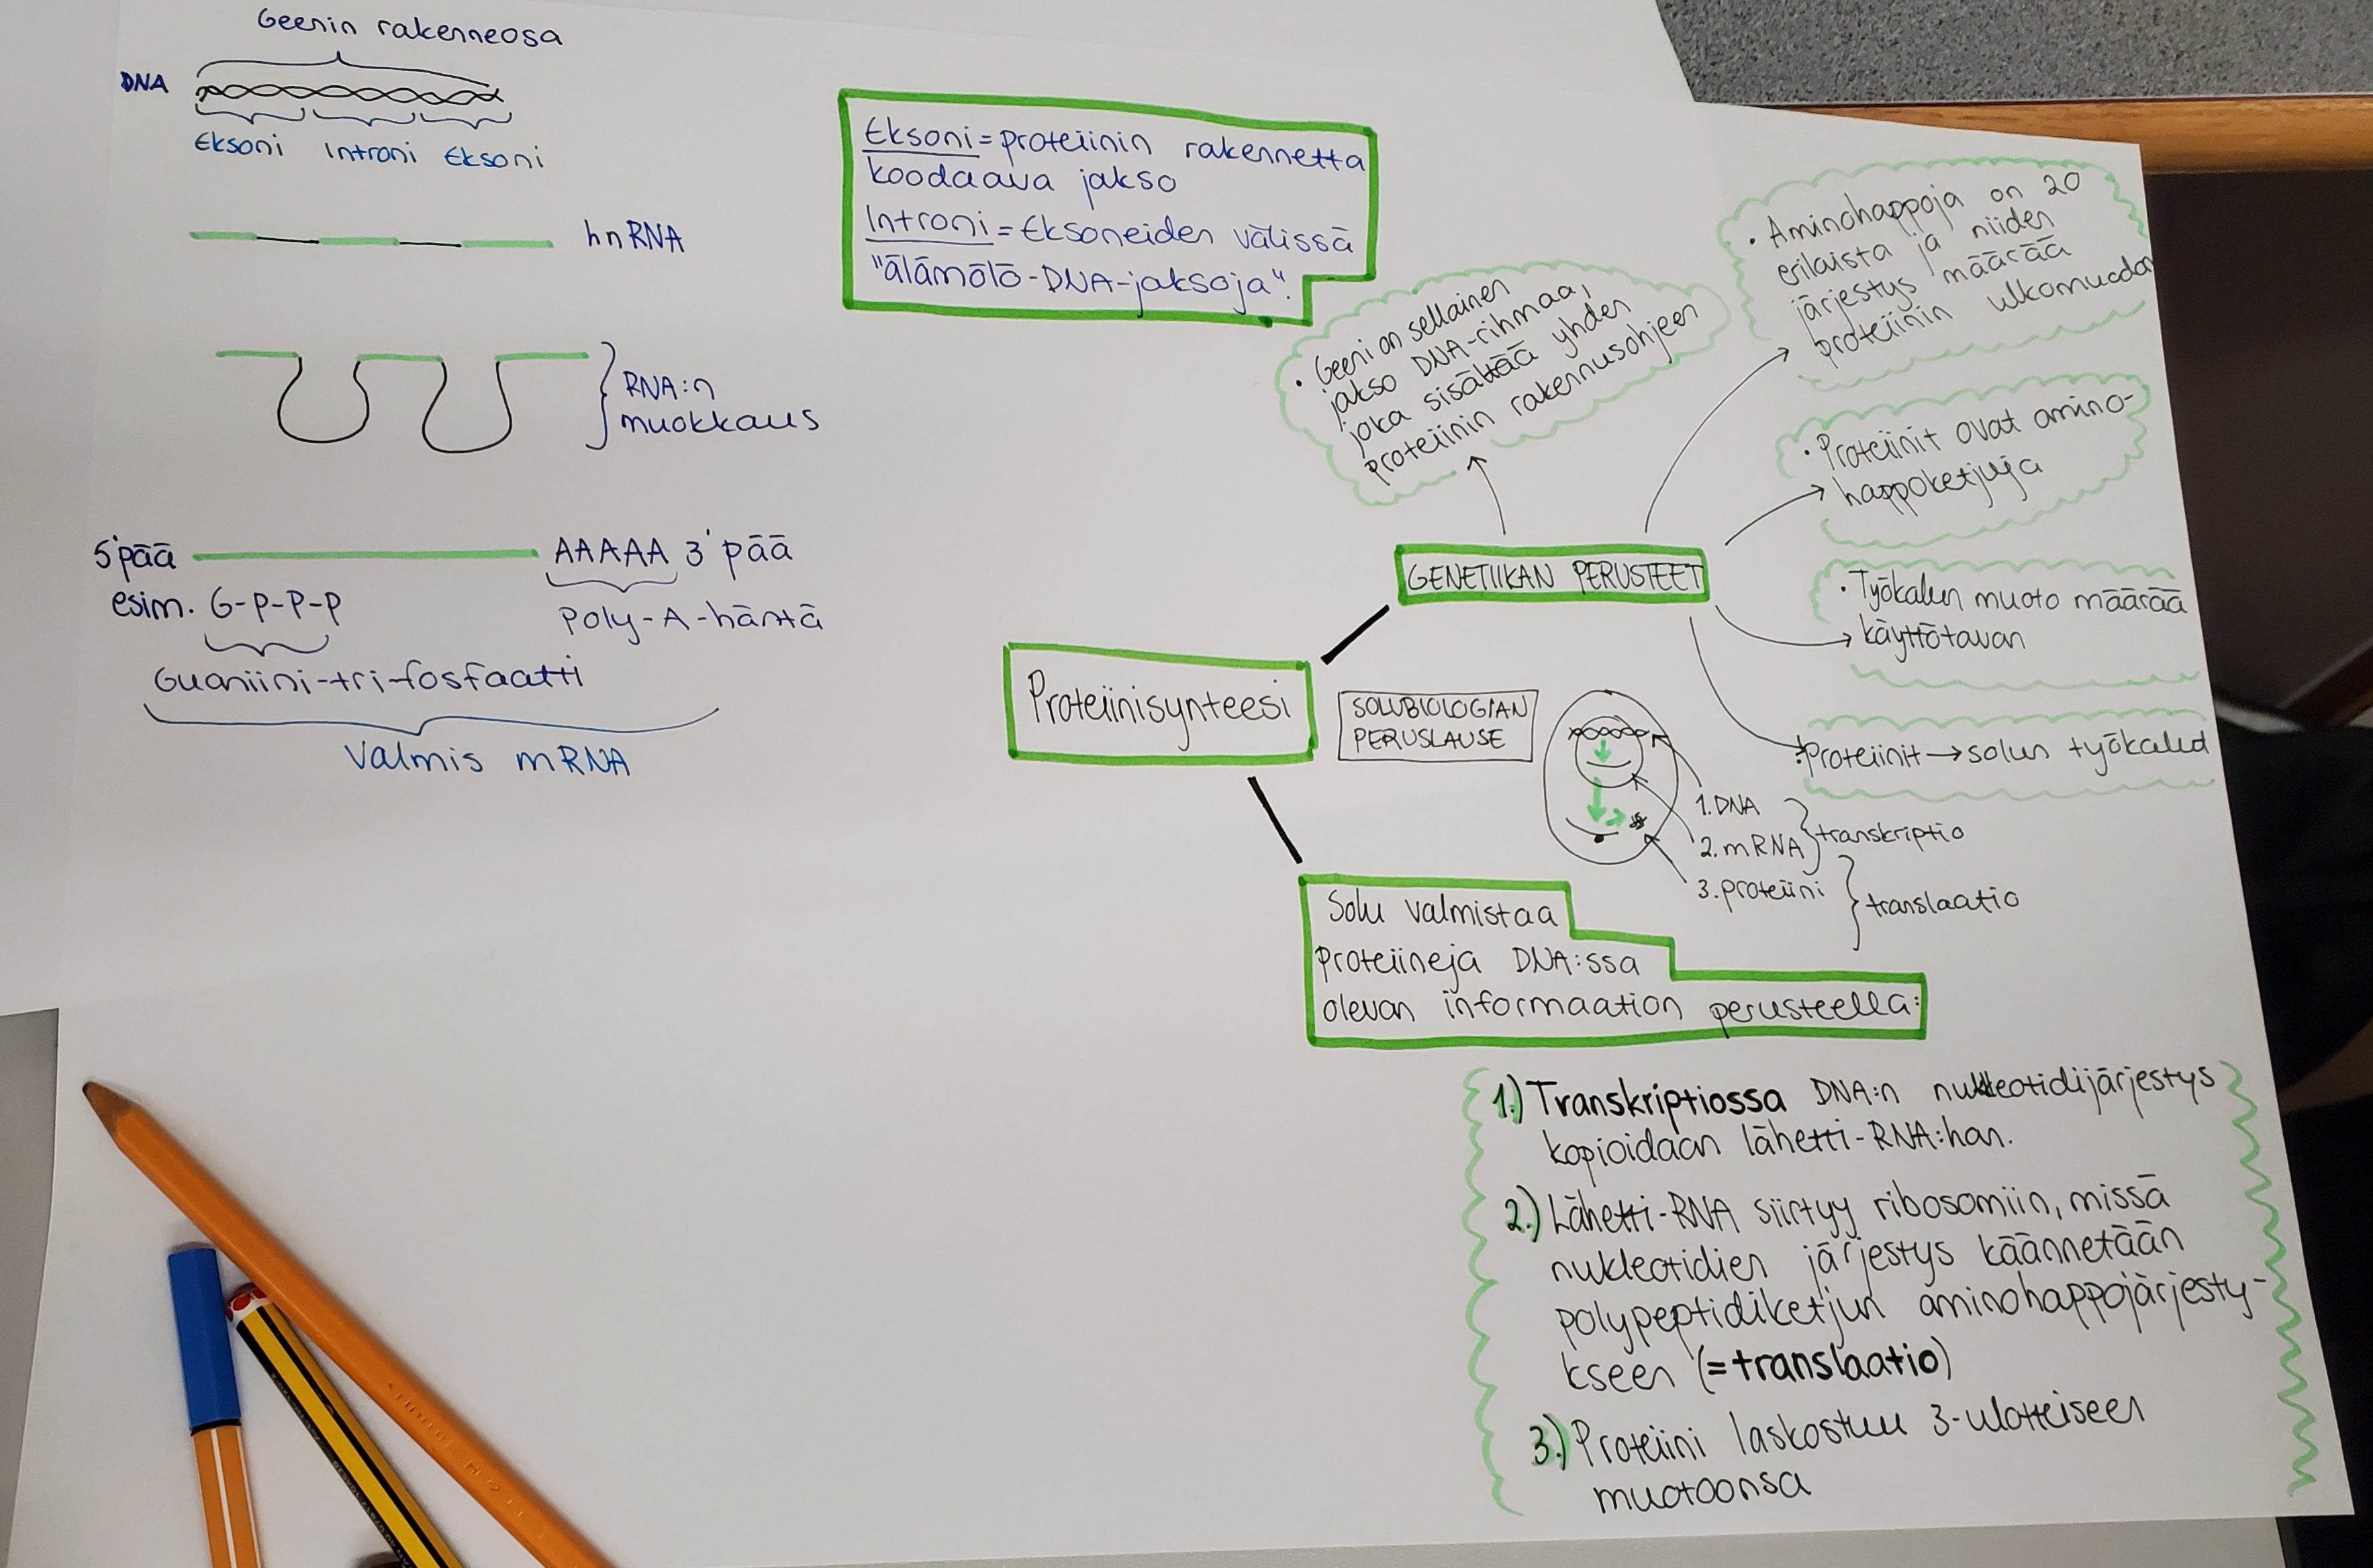 Geenin rakenneosa
DNA
Eksoni Introni Eksoni
hnRNA
RNA:n
muokkaus
5'pää
AAAAA 3'pää
esim. G-P-P-P
Poly-A-häntä
Guaniini-tri-fosfaatti
Valmis mRNA
Eksoni=proteiinin rakennetta
koodaava jakso
Introni=Eksoneiden välissä
"älämölö-DNA-jaksoja".
• Geeni on sellainen
jakso DNA-rihmaa,
joka sisältää yhden
proteiinin rakennusohjeen
• Aminohappoja on 20
erilaista ja niiden
järjestys määrää
proteiinin ulkomuodon
• Proteiinit ovat amino-
happoketjuja
GENETIIKAN PERUSTEET
• Työkalun muoto määrää
käyttötavan
• Proteiinit → solun työkalut
Proteiinisynteesi
SOLUBIOLOGIAN
PERUSLAUSE
1. DNA
2. mRNA
transkriptio
3. proteiini
translaatio
Solu valmistaa
proteiineja DNA:ssa
olevan informaation perusteella:
1.) Transkriptiossa DNA:n nukleotidijärjestys
kopioidaan lähetti-RNA:han.
2.) Lähetti-RNA siirtyy ribosomiin, missä
nukleotidien järjestys käännetään
polypeptidiketjun aminohappojärjesty-
kseen (=translaatio)
3.) Proteiini laskostuu 3-ulotteiseen
muotoonsa